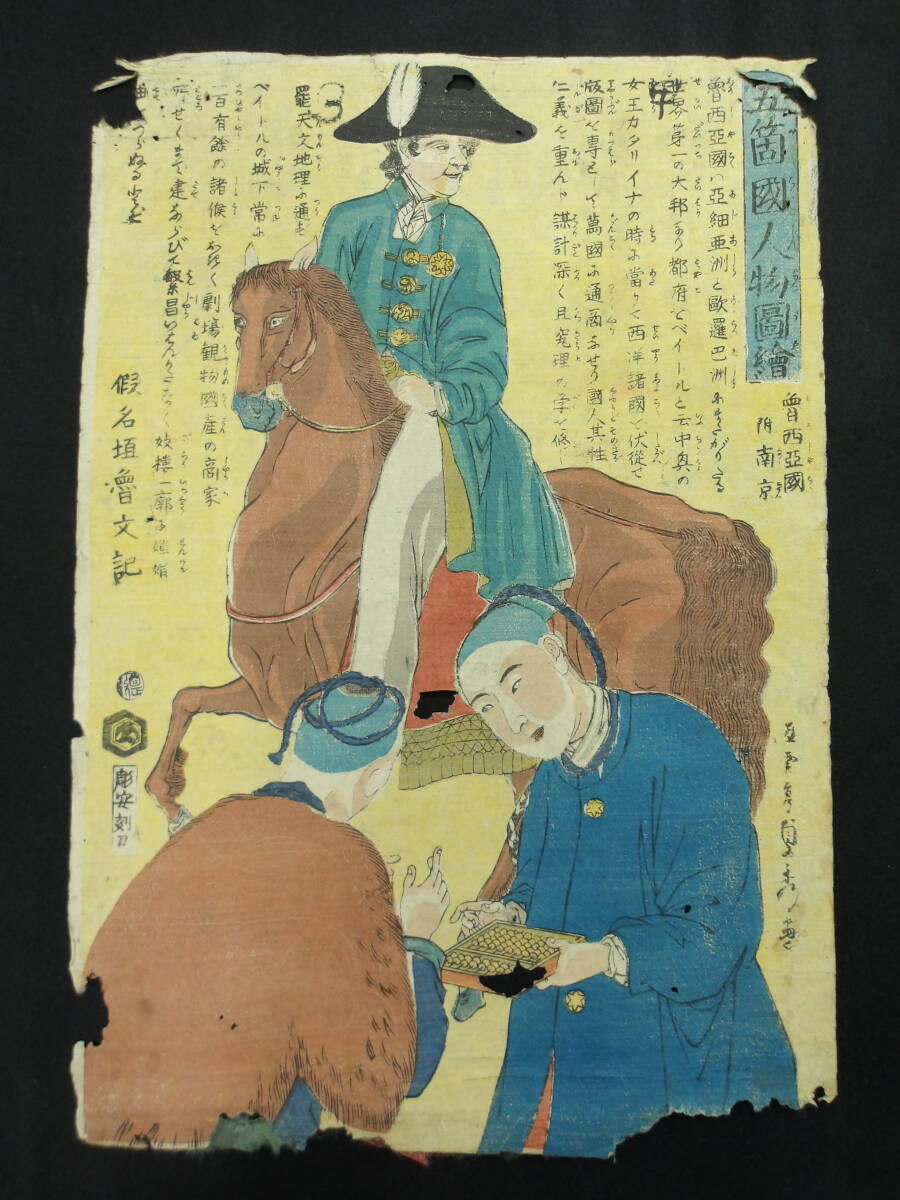 五箇國人物圖繪
魯西亞國
附南京
魯西亞國ハ亞細亜洲と歐羅巴洲にまたがりたる
世界第一の大邦なり都府をペイトルと云中興の
女王カタリイナの時に當りて西洋諸國を伏從せ
版圖を專として萬國に通商なせり國人其性
仁義を重んじ謀計深く且究理の学を修し
羅天文地理に通ず
ペイトルの城下常に
百有餘の諸侯をおきて劇場観物國産の商家
せくまで建ならびて繁昌いはんかたなく妓樓一廓に嬋娟
つらぬるとぞ
假名垣魯文記
彫安刻刀
貞秀画